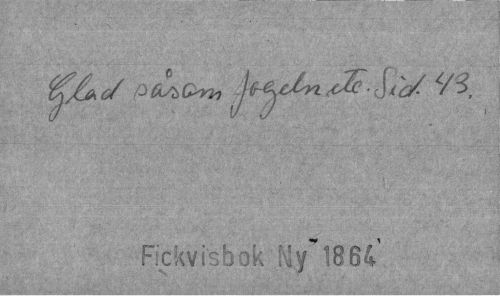 Glad såsom fogeln etc. Sid. 43.
Fickvisbok Ny 1864